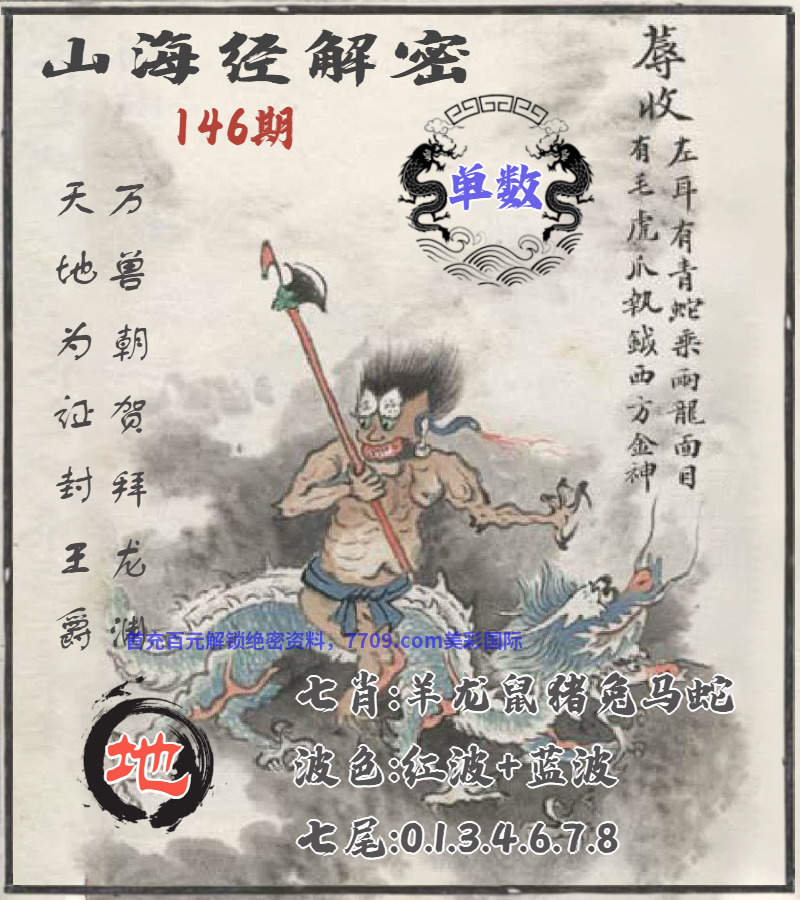 山海经解密
146期
单数
蓐收
左耳有青蛇乘兩龍面目
有毛虎爪執鉞西方金神
万兽朝贺拜龙渊
天地为证封王爵
首充百元解锁绝密资料，7709.com美彩国际
七肖:羊龙鼠猪兔马蛇
地
波色:红波+蓝波
七尾:0.1.3.4.6.7.8